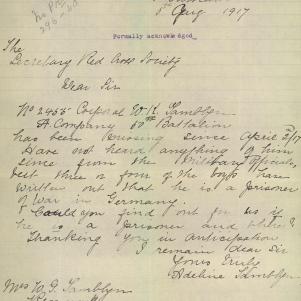 5th Aug 1917
Formally acknowledged
The
Secretary Red Cross Society
Dear Sir
No 2455 Corporal W. K. Tamblyn
A. Company Battalion
has been missing since April 2/17
Have not heard anything of him
since from the Military Officials,
but three or four of the boys have
written out that he is a prisoner
of war in Germany.
Could you find out for us if
he is a prisoner and where?
Thanking you in anticipation
I remain dear Sir
Yours truly
Adeline Tamblyn
Mrs W. J. Tamblyn